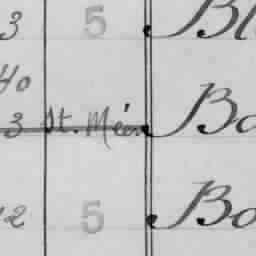 3 5 Bl
40
3 St. Méen Bo
12 5 Bo